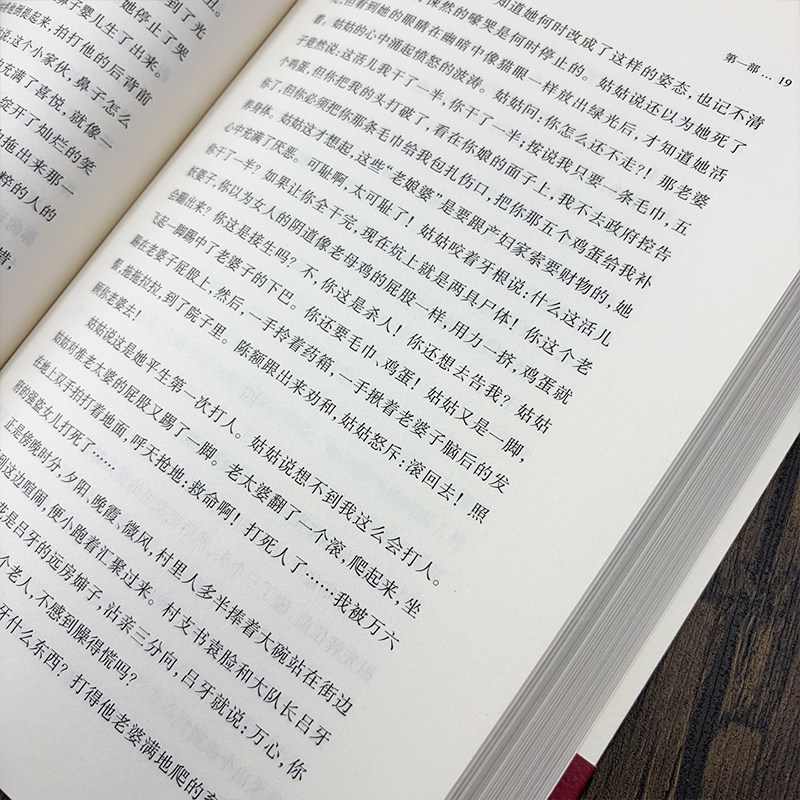 丑。
她停止了哭
鼻子婴儿生了出来。
倒提起来，拍打他的后背前
说：这个小家伙，鼻子怎么
充满了喜悦，就像一
绽开了灿烂的笑
拖出来那一
粹的人的
惜，
第一部 … 19
知道她何时改成了这样的姿态，也记不清
然的嚎哭是何时停止的。姑姑说还以为她死了
但看到她的眼睛在幽暗中像猫眼一样放出绿光后，才知道她活
着。姑姑的心中涌起愤怒的波涛。姑姑问：你怎么还不走？！那老婆
子竟然说：这活儿我干了一半，你干了一半，按说我只要一条毛巾，五
个鸡蛋，但你把我的头打破了，看在你娘的面子上，我不去政府控告
你了，但你必须把你那条毛巾给我包扎伤口，把你那五个鸡蛋给我补
养身体。姑姑这才想起，这些“老娘婆”是要跟产妇家索要财物的，她
心中充满了厌恶。可耻啊，太可耻了！姑姑咬着牙根说：什么这活儿
你干了一半？如果让你全干完，现在炕上就是两具尸体！你这个老
妖婆子，你以为女人的阴道像老母鸡的屁股一样，用力一挤，鸡蛋就
会蹦出来？你这是接生吗？不，你这是杀人！你还想去告我？姑姑
飞起一脚踢中了老婆子的下巴。你还要毛巾、鸡蛋！姑姑又是一脚，
踢在老婆子屁股上，然后，一手拎着药箱，一手揪着老婆子脑后的发
髻，拖拖拉拉，到了院子里。陈额跟出来劝和，姑姑怒斥：滚回去！照
顾你老婆去！
姑姑说这是她平生第一次打人。姑姑说想不到我这么会打人。
姑姑对准老太婆的屁股又踢了一脚。老太婆翻了一个滚，爬起来，坐
在地上双手拍打着地面，呼天抢地：救命啊！打死人了……我被万六
府的强盗女儿打死了……
正是傍晚时分，夕阳、晚霞、微风，村里人多半捧着大碗站在街边
到这边喧闹，便小跑着汇聚过来。村支书袁脸和大队长吕牙
是吕牙的远房婶子，沾亲三分向，吕牙就说：万心，你
个老人，不感到臊得慌吗？
牙什么东西？打得他老婆满地爬的